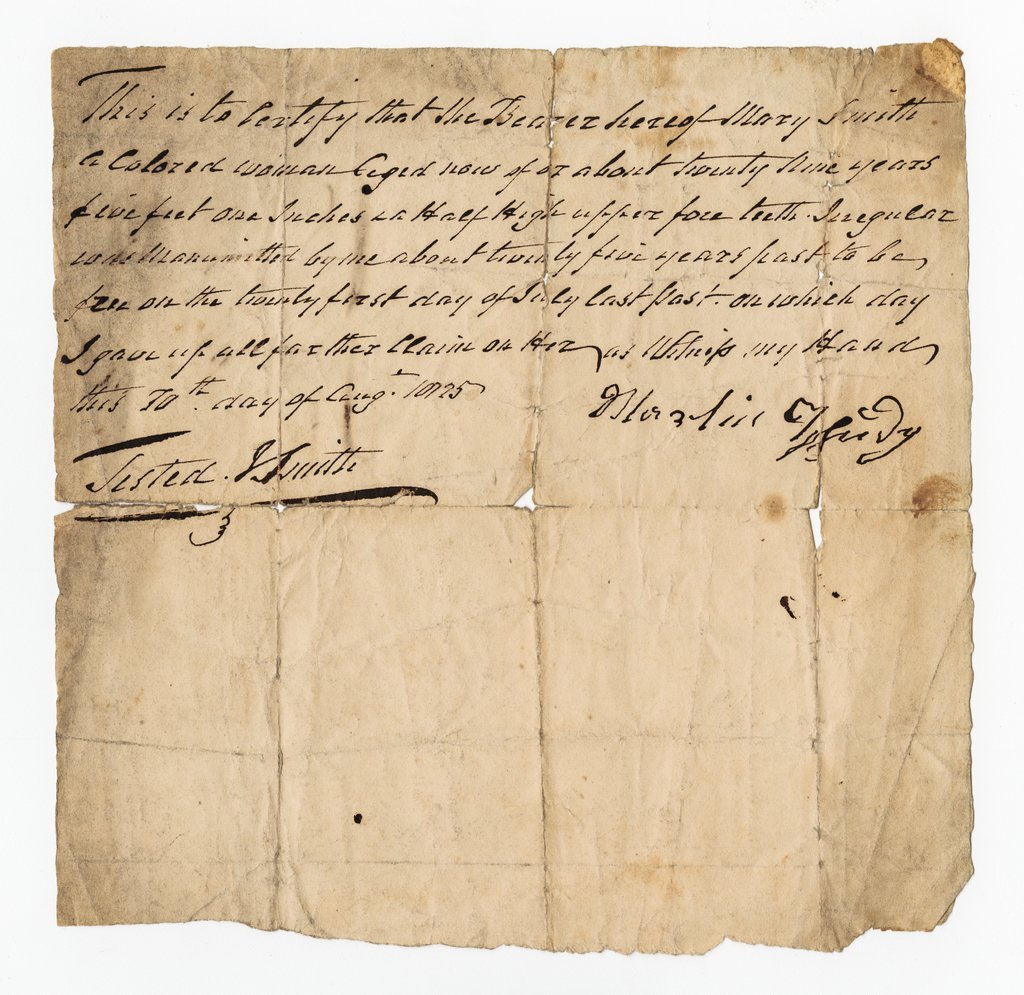 This is to Certify that the Bearer hereof Mary Smith
a Colored woman Aged now of or about twenty Nine years
five feet one Inches & a Half High upper fore teeth Irregular
was Manumitted by me about twenty five years past to be
free on the twenty first day of July last past. on which day
I gave up all farther Claim on Her as Witness my Hand
this 30th. day of Augt. 1825
Martin
Tested. J Smith